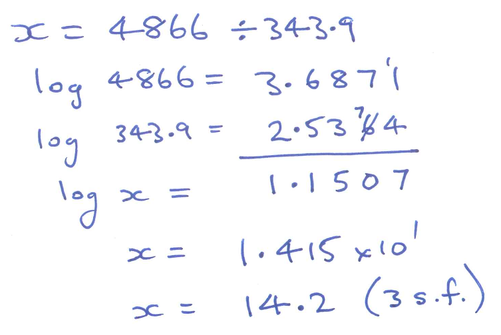 x = 4866 ÷ 343.9
log 4866 = 3.6871
log 343.9 = 2.5364
log x = 1.1507
x = 1.415 x 10¹
x = 14.2 (3 s.f.)